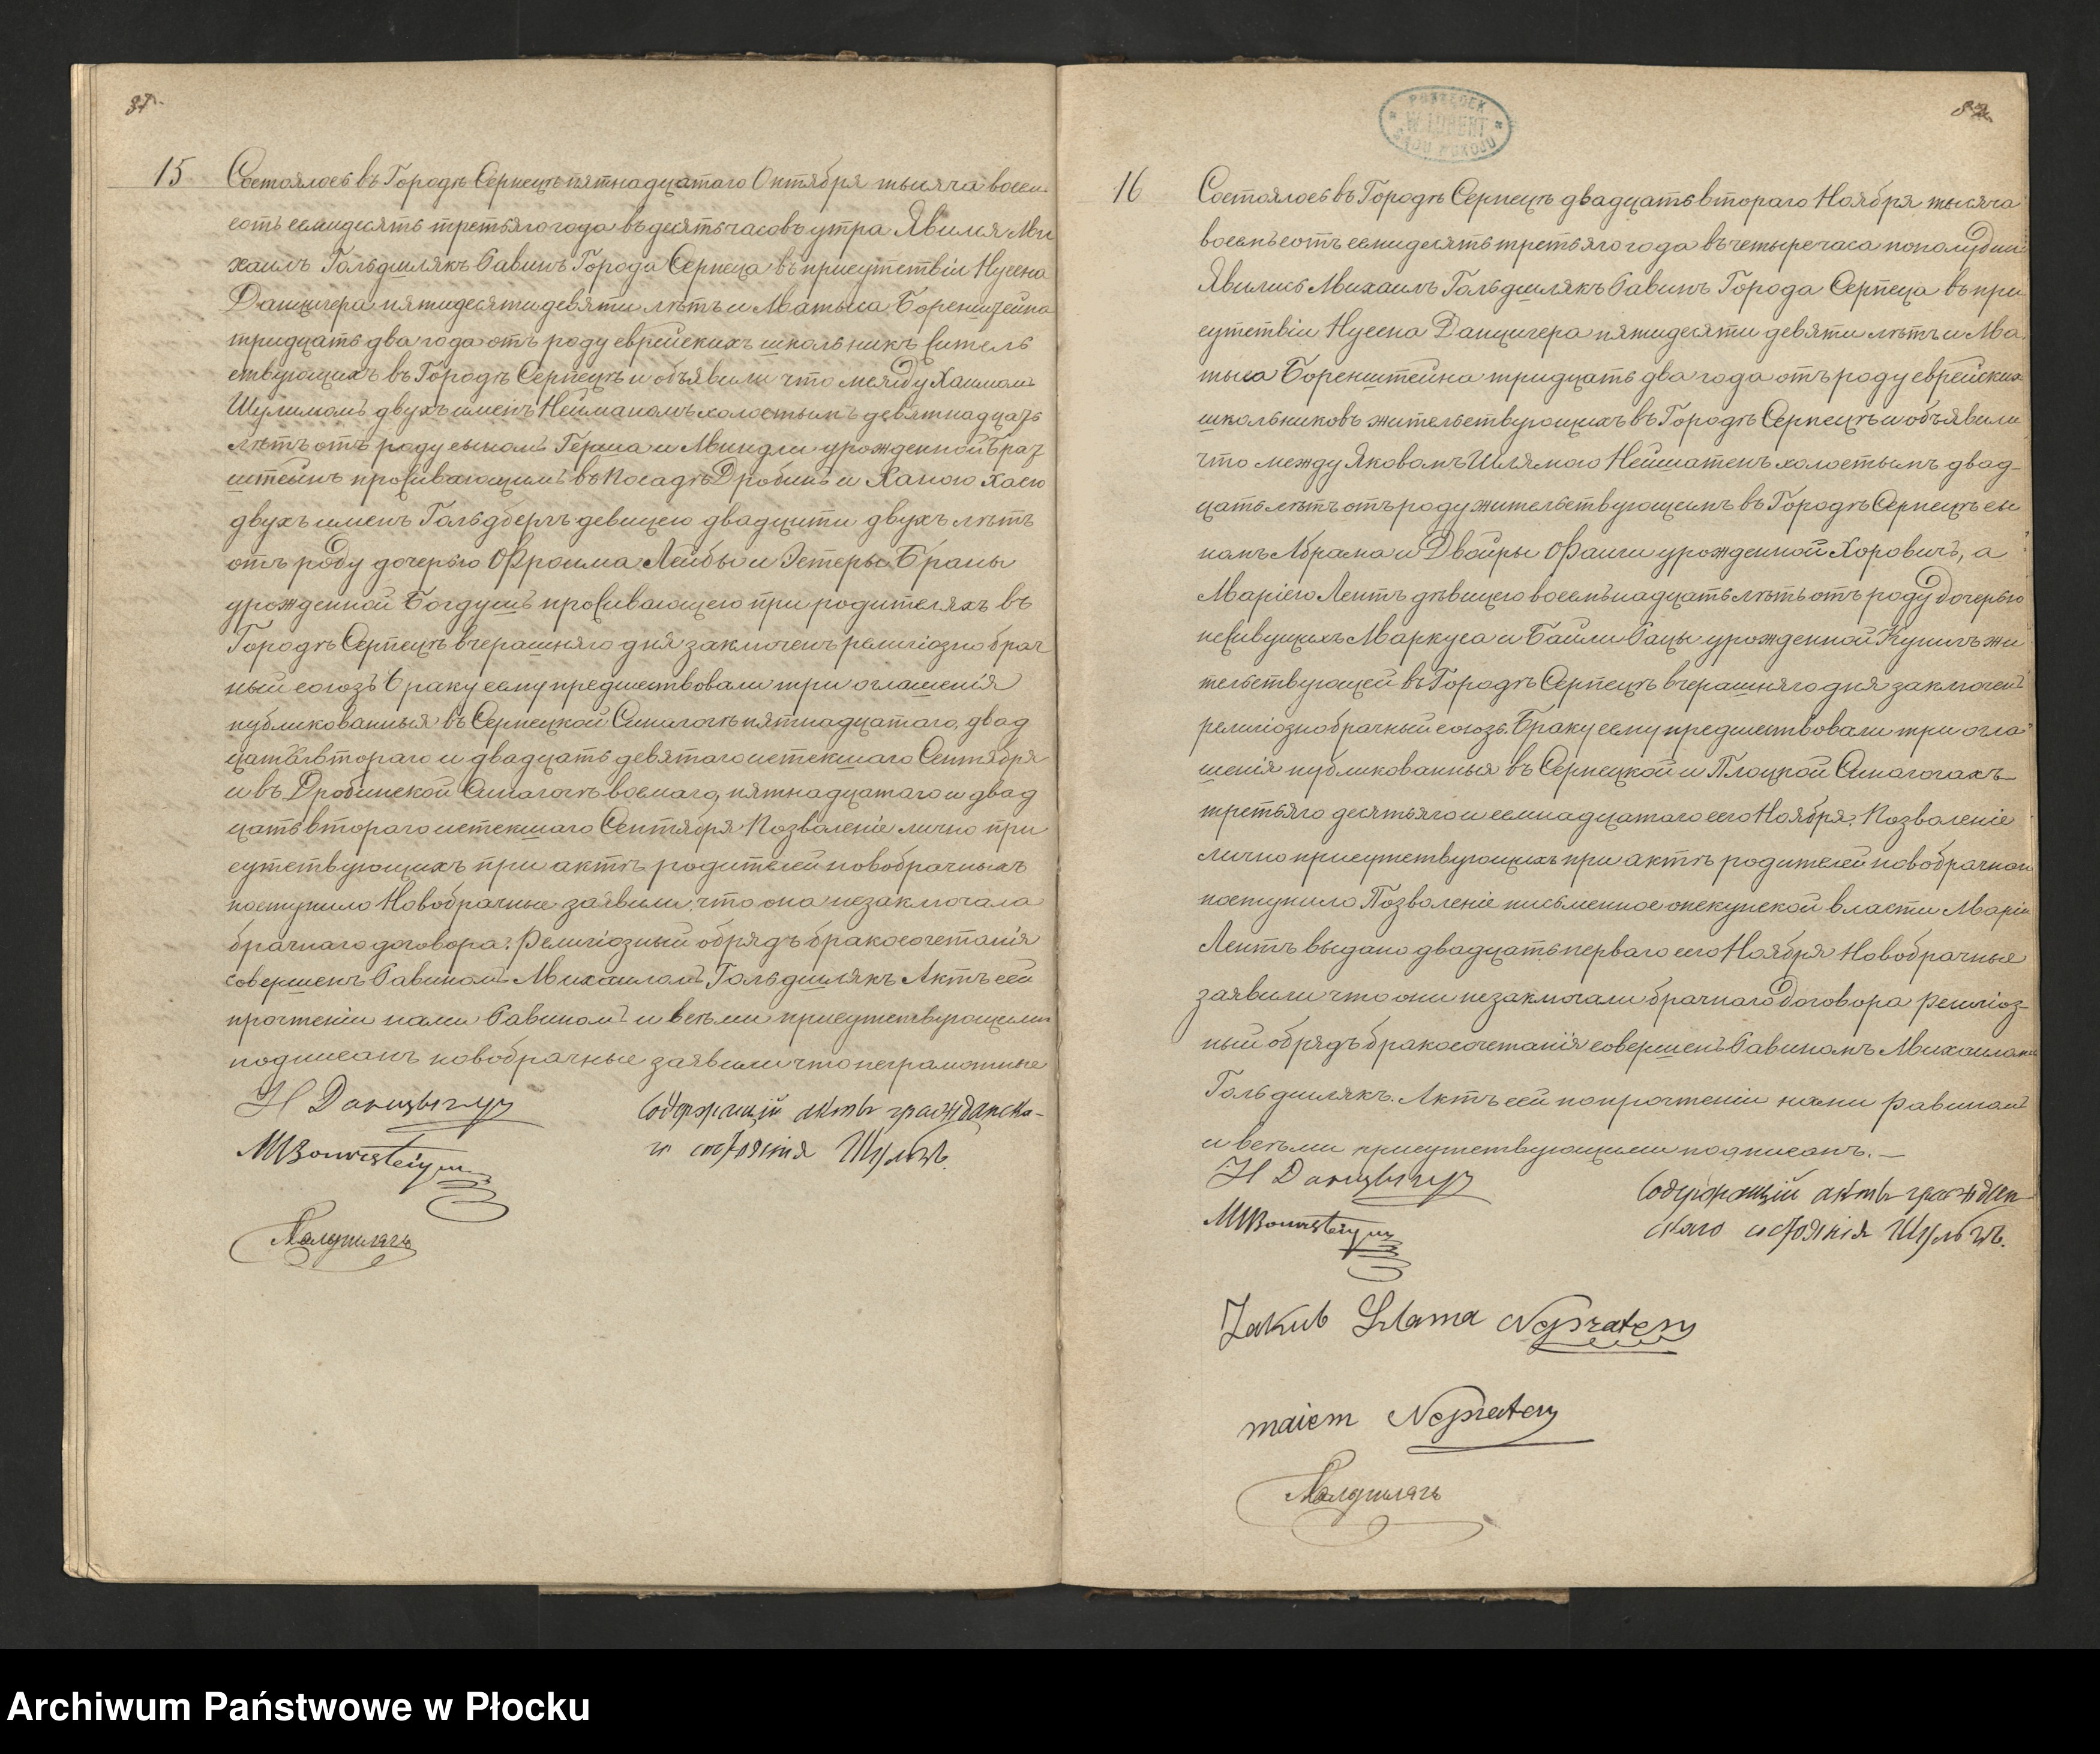 81.
15 Состоялось въ Городѣ Серпецѣ пятнадцатаго Октября тысяча восем-
сотъ семидесять третьяго года въ десять часовъ утра Явился Ми
хаилъ Гольдшлякъ Равинъ Города Серпеца въ присутствіи Нусена
Данцигера пятидесяти девяти лѣтъ и Матыса Боренштейна
тридцать два года отъ роду еврейскихъ школьникъ житель
ствующихъ въ Городѣ Серпецѣ и объявили что между Хаимомъ
Шулимомъ двухъ именъ Нейманомъ холостымъ девятнадцать
лѣтъ отъ роду сыномъ Герша и Миндли урожденной Браз
штейнъ проживающимъ въ Посадѣ Дробинъ и Ханою Хаею
двухъ именъ Гольдбергъ девицею двадцати двухъ лѣтъ
отъ роду дочерью Фроима Лейбы и Эстеры Браны
урожденной Богдушъ проживающею при родителяхъ въ
Городѣ Серпецѣ вчерашняго дня заключенъ религіозно брач
ный союзъ Браку сему предшествовали три оглашенія
публикованныя въ Серпецкой Синагогѣ пятнадцатаго, двад
цать втораго и двадцать девятаго истекшаго Сентября
и въ Дробинской Синагогѣ восмаго, пятнадцатаго и двад
цать втораго истекшаго Сентября Позволеніе лично при
сутствующихъ при актѣ родителей новобрачныхъ
поступило Новобрачные заявили, что она незаключала
брачнаго договора. Религіозный обрядъ бракосочетанія
совершенъ Равиномъ Михаиломъ Гольдшлякъ Актъ сей
прочтеніи нами Равиномъ и всѣми присутствующими
подписанъ новобрачные заявили что неграмотные
Н Данцыгер
Содержащій акты гражданска-
MBornsteiyn
го состоянія Шульцъ.
Голдшлягъ
POSTĘPEK W IDKENT SĄDU POKOJU
82
16 Состоялось въ Городѣ Серпецѣ двадцать втораго Ноября тысяча
восемьсотъ семидесять третьяго года въ четыре часа пополудни
Явились Михаилъ Гольдшлякъ Равинъ Города Серпеца въ при
сутствіи Нусена Данцигера пятидесяти девяти лѣтъ и Ма
тыса Боренштейна тридцать два года отъ роду еврейских
школьниковъ жительствующихъ въ Городѣ Серпецѣ и объявили
что между Яковомъ Шлямою Нейшатенъ холостымъ двад-
цать лѣтъ отъ роду жительствующемъ въ Городѣ Серпецѣ сы
номъ Абрама и Двойры Фаиги урожденной Хоровичъ, а
Маріею Лентъ дѣвицею восемьнадцать лѣтъ отъ роду дочерью
неживущихъ Маркуса и Байли Рацы урожденной Купигъ жи
тельствующей въ Городѣ Серпецѣ вчерашняго дня заключенъ
религіозно брачный союзъ. Браку сему предшествовали три огла
шенія публикованныя въ Серпецкой и Плоцкой Синагогахъ
третьяго десятьяго и семнадцатаго сего Ноября. Позволеніе
лично присутствующихъ при актѣ родителей новобрачнаго
поступило Позволеніе письменное опекунской власти Маріи
Лентъ выдано двадцать перваго сего Ноября Новобрачные
заявили что они незаключали брачнаго договора религіоз-
ный обрядъ бракосочетанія совершенъ Равиномъ Михаиломъ
Гольдшлякъ. Актъ сей по прочтеніи нами равиномъ
и всѣми присутствующими подписанъ. —
Н Данцыгер
Содержащій акты граждан-
MBornsteiyn
скаго состоянія Шульцъ.
Jakub Szlama Nejsztaten
mariem Nejsztaten
Голдшлягъ
Archiwum Państwowe w Płocku